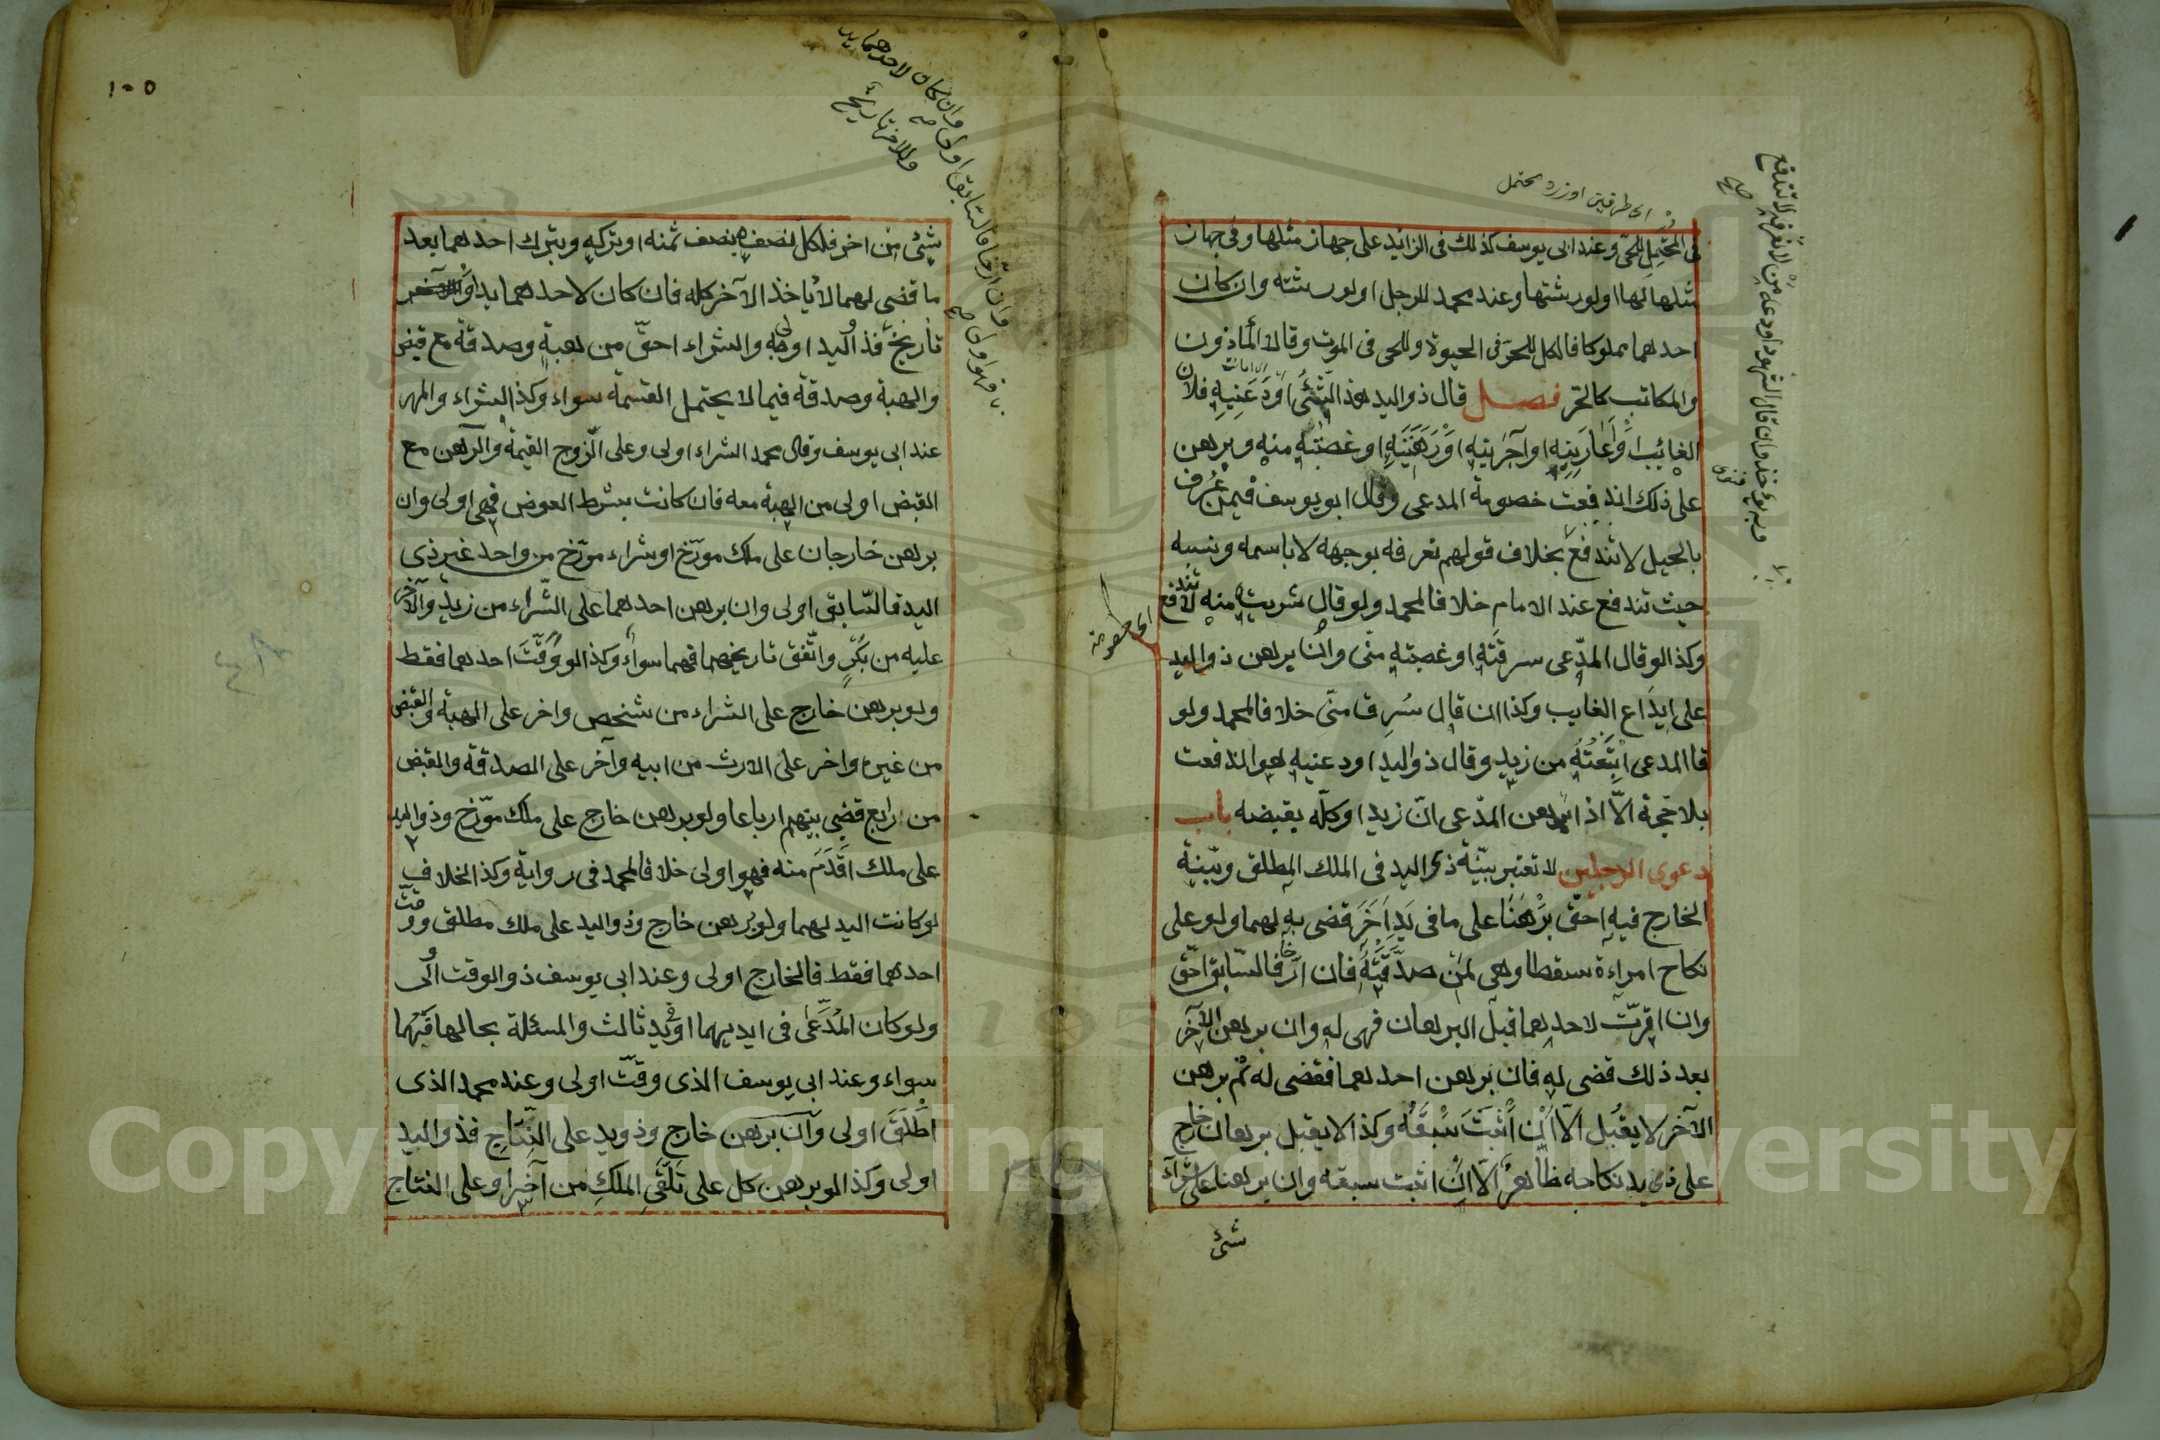 في المحتمل للحي وعند ابى يوسف كذلك فى الزائد على جهاز مثلها وفى جهاز
مثلها لها اولورثتها وعند محمد للرجل اولورثته وان كان
احدهما مملوكا فالكل للحر فى الحيوة وللحى فى الموت وقالا المأذون
والمكاتب كالحر فصل قال ذواليد هذا الشئ اودعنيه فلان
الغائب اواعارنيه اوآجرنيه اورهننيه اوغصبته منه وبرهن
على ذلك اندفعت خصومة المدعى وقال ابو يوسف فيمن عرف
بالحيل لا تندفع بخلاف قولهم نعرفه بوجهه لا باسمه ونسبه
حيث تندفع عند الامام خلافا لمحمد ولو قال شريته منه لا تندفع
وكذا لو قال المدعى سرقته اوغصبته منى وان برهن ذواليد
على ايداع الغايب وكذا ان قال سرق منى خلافا لمحمد ولو
قا المدعى ابتعته من زيد وقال ذواليد اودعنيه هو اندفعت
بلا حجة الّا اذا برهن المدّعى انّ زيدا وكله بقبضه باب
دعوى الرجلين لا تعتبر بيّنة ذى اليد فى الملك المطلق وبيّنة
الخارج فيه احقّ برهنا على ما فى يد آخر قضى به لهما ولو على
نكاح امراءة سقطا وهى لمن صدّقته فان ارخا فالسّابق احقّ
وان اقرّت لاحدهما قبل البرهان فهى له وان برهن الآخر
بعد ذلك قضى له فان برهن احدهما فقضى له ثم برهن
الآخر لا يقبل الّا ان اثبت سبقه وكذا لا يقبل برهان خارج
على ذى يد نكاحه ظاهر الّا ان اثبت سبقه وان برهنا على شراء
شئ
اى خصومة
١٠٥
شئ من آخر فلكل نصفه بنصف ثمنه او تركه وبترك احدهما بعد
ما قضى لهما لا ياخذ الآخر كله فان كان لاحدهما يد او
تاريخ فذواليد اولى والشراء احقّ من هبة وصدقة مع قبض
والهبة وصدقة فيما لا يحتمل القسمة سواء وكذا الشراء والمهر
عند ابى يوسف وقال محمد الشراء اولى وعلى الزّوج القيمة والرهن مع
القبض اولى من الهبة معه فان كانت بشرط العوض فهى اولى وان
برهن خارجان على ملك مورّخ اوشراء مورّخ من واحد غير ذى
اليد فالسّابق اولى وان برهن احدهما على الشّراء من زيد والآخر
عليه من بكر واتّفق تاريخهما فهما سواء وكذا لو وقّت احدهما فقط
ولو برهن خارج على الشراء من شخص واخر على الهبة والقبض
من غيره واخر على الارث من ابيه وآخر على الصدقة والقبض
من رابع قضى بينهم ارباعا ولو برهن خارج على ملك مورّخ وذواليد
على ملك اقدم منه فهو اولى خلافا لمحمد فى رواية وكذا الخلاف
لو كانت اليد لهما ولو برهن خارج وذواليد على ملك مطلق ووقت
احدهما فقط فالخارج اولى وعند ابى يوسف ذوالوقت اولى
ولو كان المدّعى فى ايديهما او فى يد ثالث والمسئلة بحالها فهما
سواء وعند ابى يوسف الذى وقّت اولى وعند محمد الذى
اطلق اولى وان برهن خارج وذويد على النتاج فذواليد
اولى وكذا لو برهن كل على تلقى الملك من آخر وعلى النتاج
وان ارّخا فالسّابق اولى وان كان لاحدهما يد
وللاخر تاريخ
فهو اولى
Copyright © King Saud University